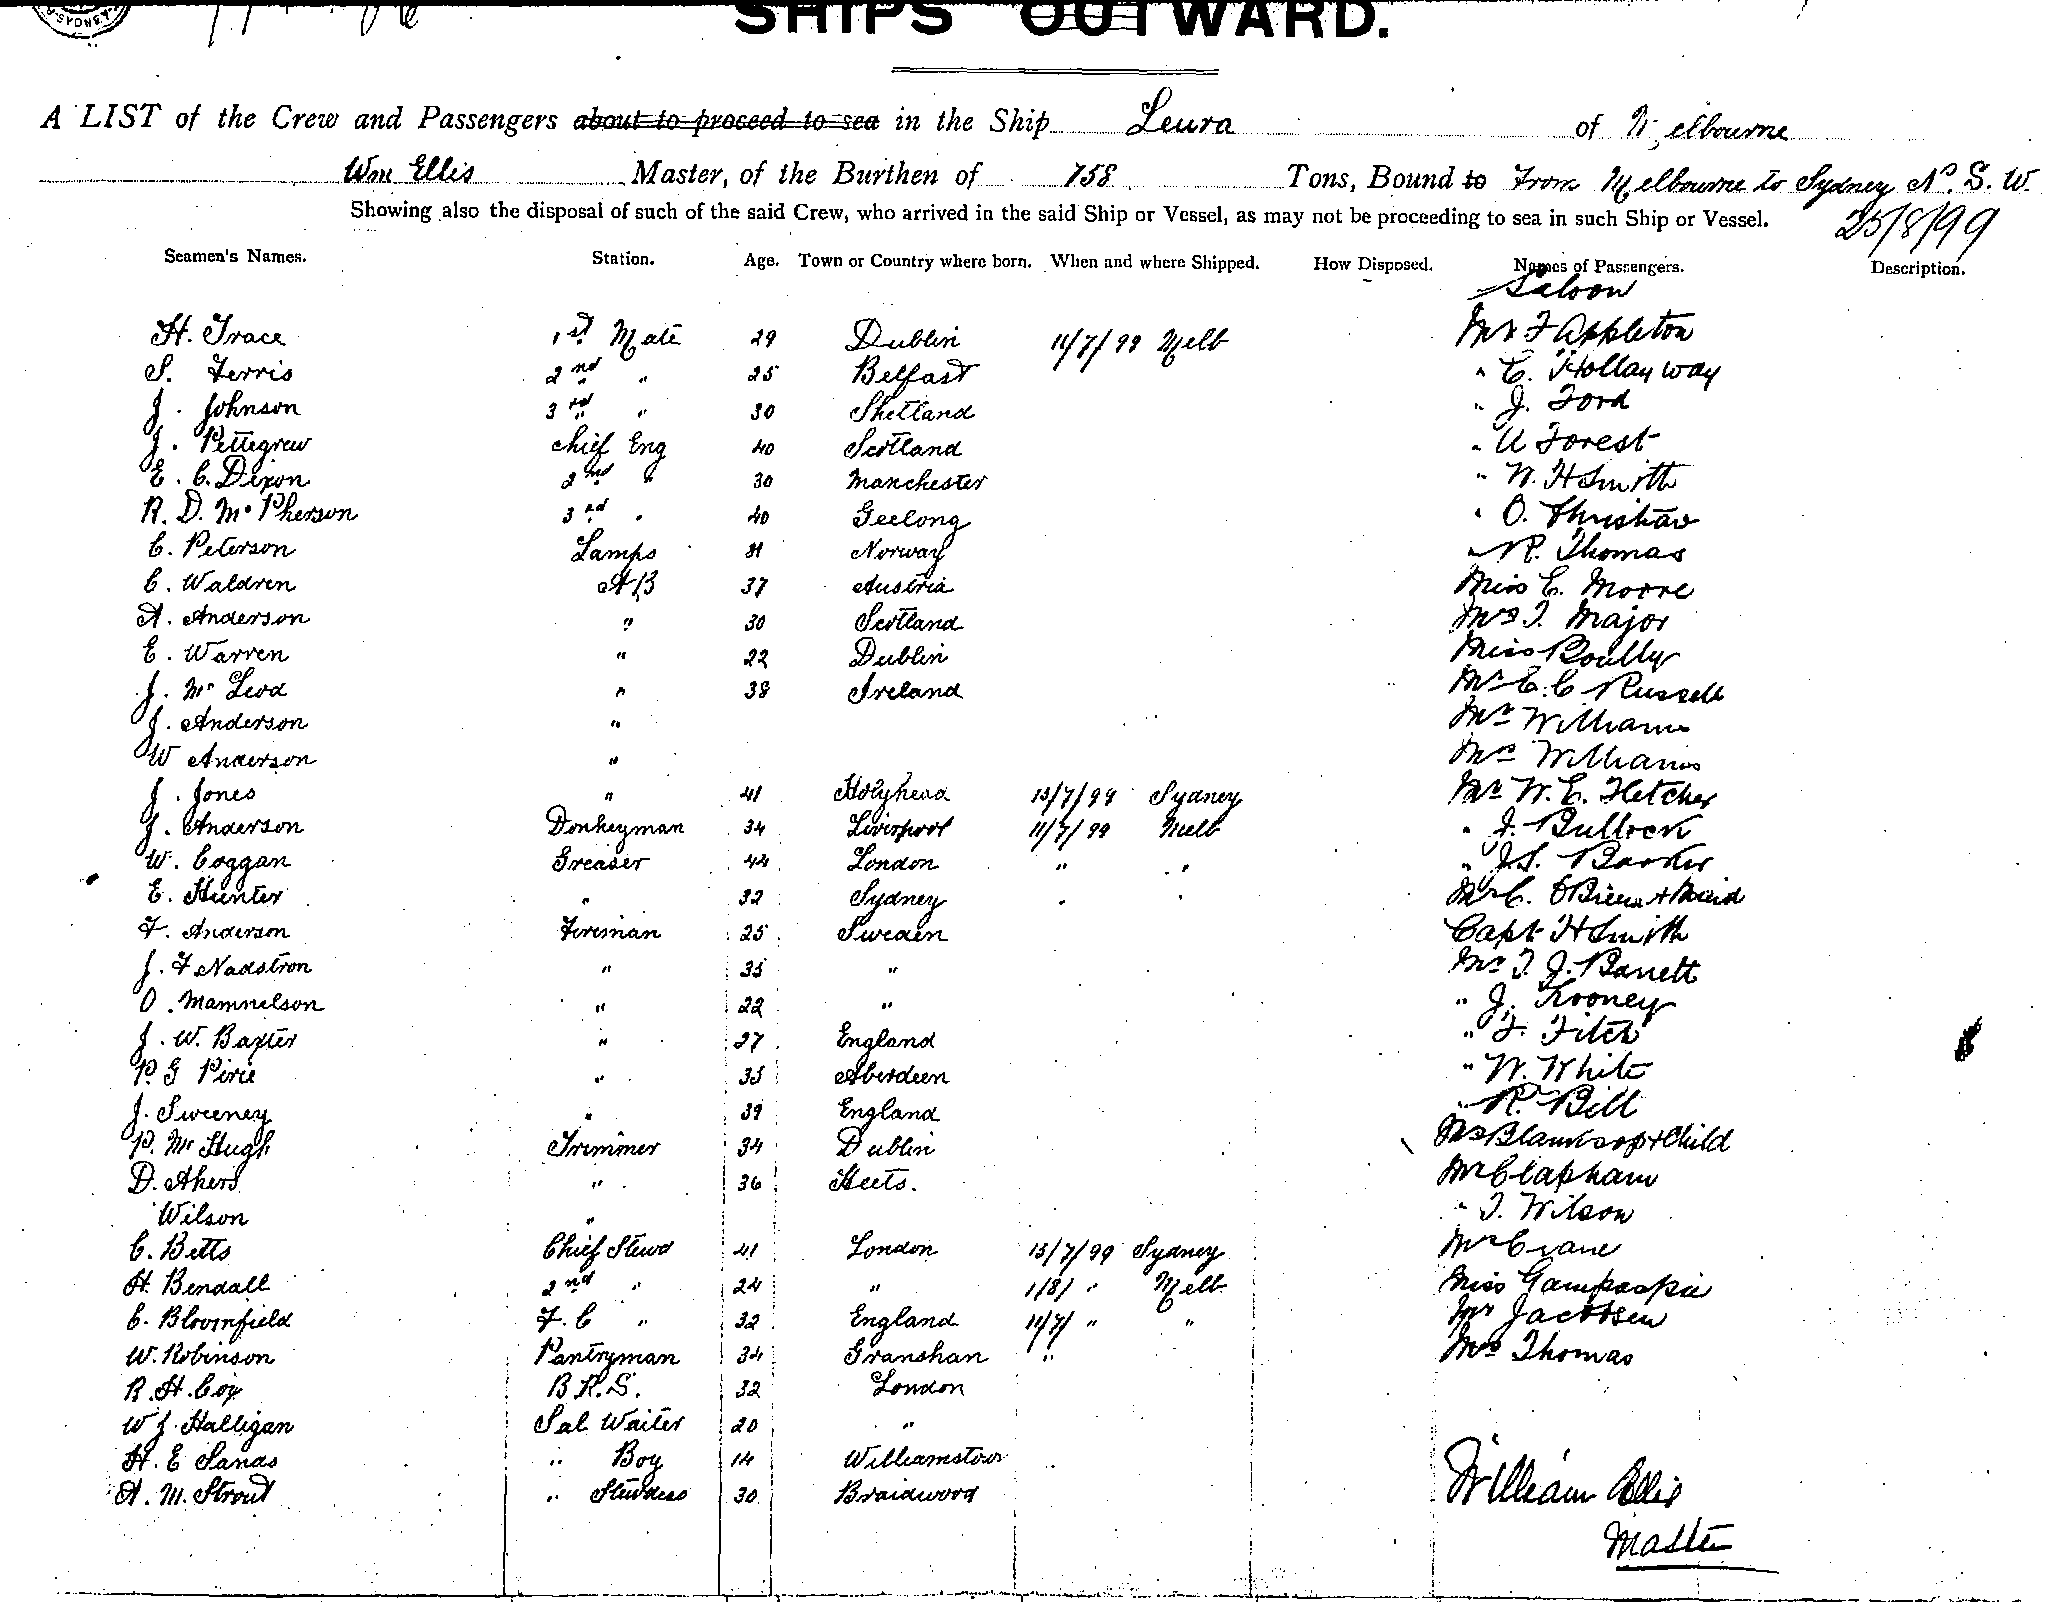 SHIPS OUTWARD.
A LIST of the Crew and Passengers about to proceed to sea in the Ship Leura of Melbourne
Wm Ellis Master, of the Burthen of 758 Tons, Bound to From Melbourne to Sydney N. S. W.
Showing also the disposal of such of the said Crew, who arrived in the said Ship or Vessel, as may not be proceeding to sea in such Ship or Vessel. 25/8/99
Seamen's Names. Station. Age. Town or Country where born. When and where Shipped. How Disposed. Names of Passengers. Description.
Saloon
H. Trace 1st Mate 29 Dublin 11/7/99 Melb Mr F Appleton
S. Ferris 2nd " 25 Belfast " C. Hollayway
J. Johnson 3rd " 30 Shetland " J. Ford
J. Pettegrew Chief Eng 40 Scotland " U Forest
E. C. Dixon 2nd " 30 Manchester " W. H Smith
R. D. Mc Pherson 3rd " 40 Geelong " O.
C. Peterson Lamps Norway " R. Thomas
C. Waldren AB 37 Austria Miss C. Moore
A. Anderson " 30 Scotland Mrs T. Major
E. Warren " 22 Dublin Miss Boully
J. Mc Leod " 38 Ireland Mr C. C Russell
J. Anderson " Mr Williams
W Anderson " Mrs Williams
J. Jones " 41 Holyhead 13/7/99 Sydney Mr W. E. Fletcher
J. Anderson Donkeyman 34 Liverpool 11/7/99 Melb " J. Bullock
W. Coggan Greaser 44 London " " " J. S. Barker
E. Hunter " 32 Sydney " " Mr C. O'Brien + Maid
F. Anderson Fireman 25 Sweden Capt H Smith
J. F Nadstron " 35 " Mr T. J. Barrett
O. Mamnelson " 22 " " J. Rooney
J. W. Baxter " 27 England " F. Fitch
P. G Pirie " 35 Aberdeen " W. White
J. Sweeney " 39 England " R. Bill
P. Mc Hugh Trimmer 34 Dublin Mrs + Child
D. Ahern " 36 Mr Clapham
Wilson " " T. Wilson
C. Betts Chief Stewd 41 London 13/7/99 Sydney Mr Crane
H. Bendall 2nd " 24 " 1/8/ " Melb Miss
C. Bloomfield F. C " 32 England 11/7/ " " Mr Jacobsen
W. Robinson Pantryman 34 " Mrs Thomas
R. H. Cox B.R.S. 32 London
W J. Halligan Sal Waiter 20 "
H. E Sands " Boy 14 Williamstown
A. M. Strout " Stewdess 30 Braidwood
William Ellis
Master